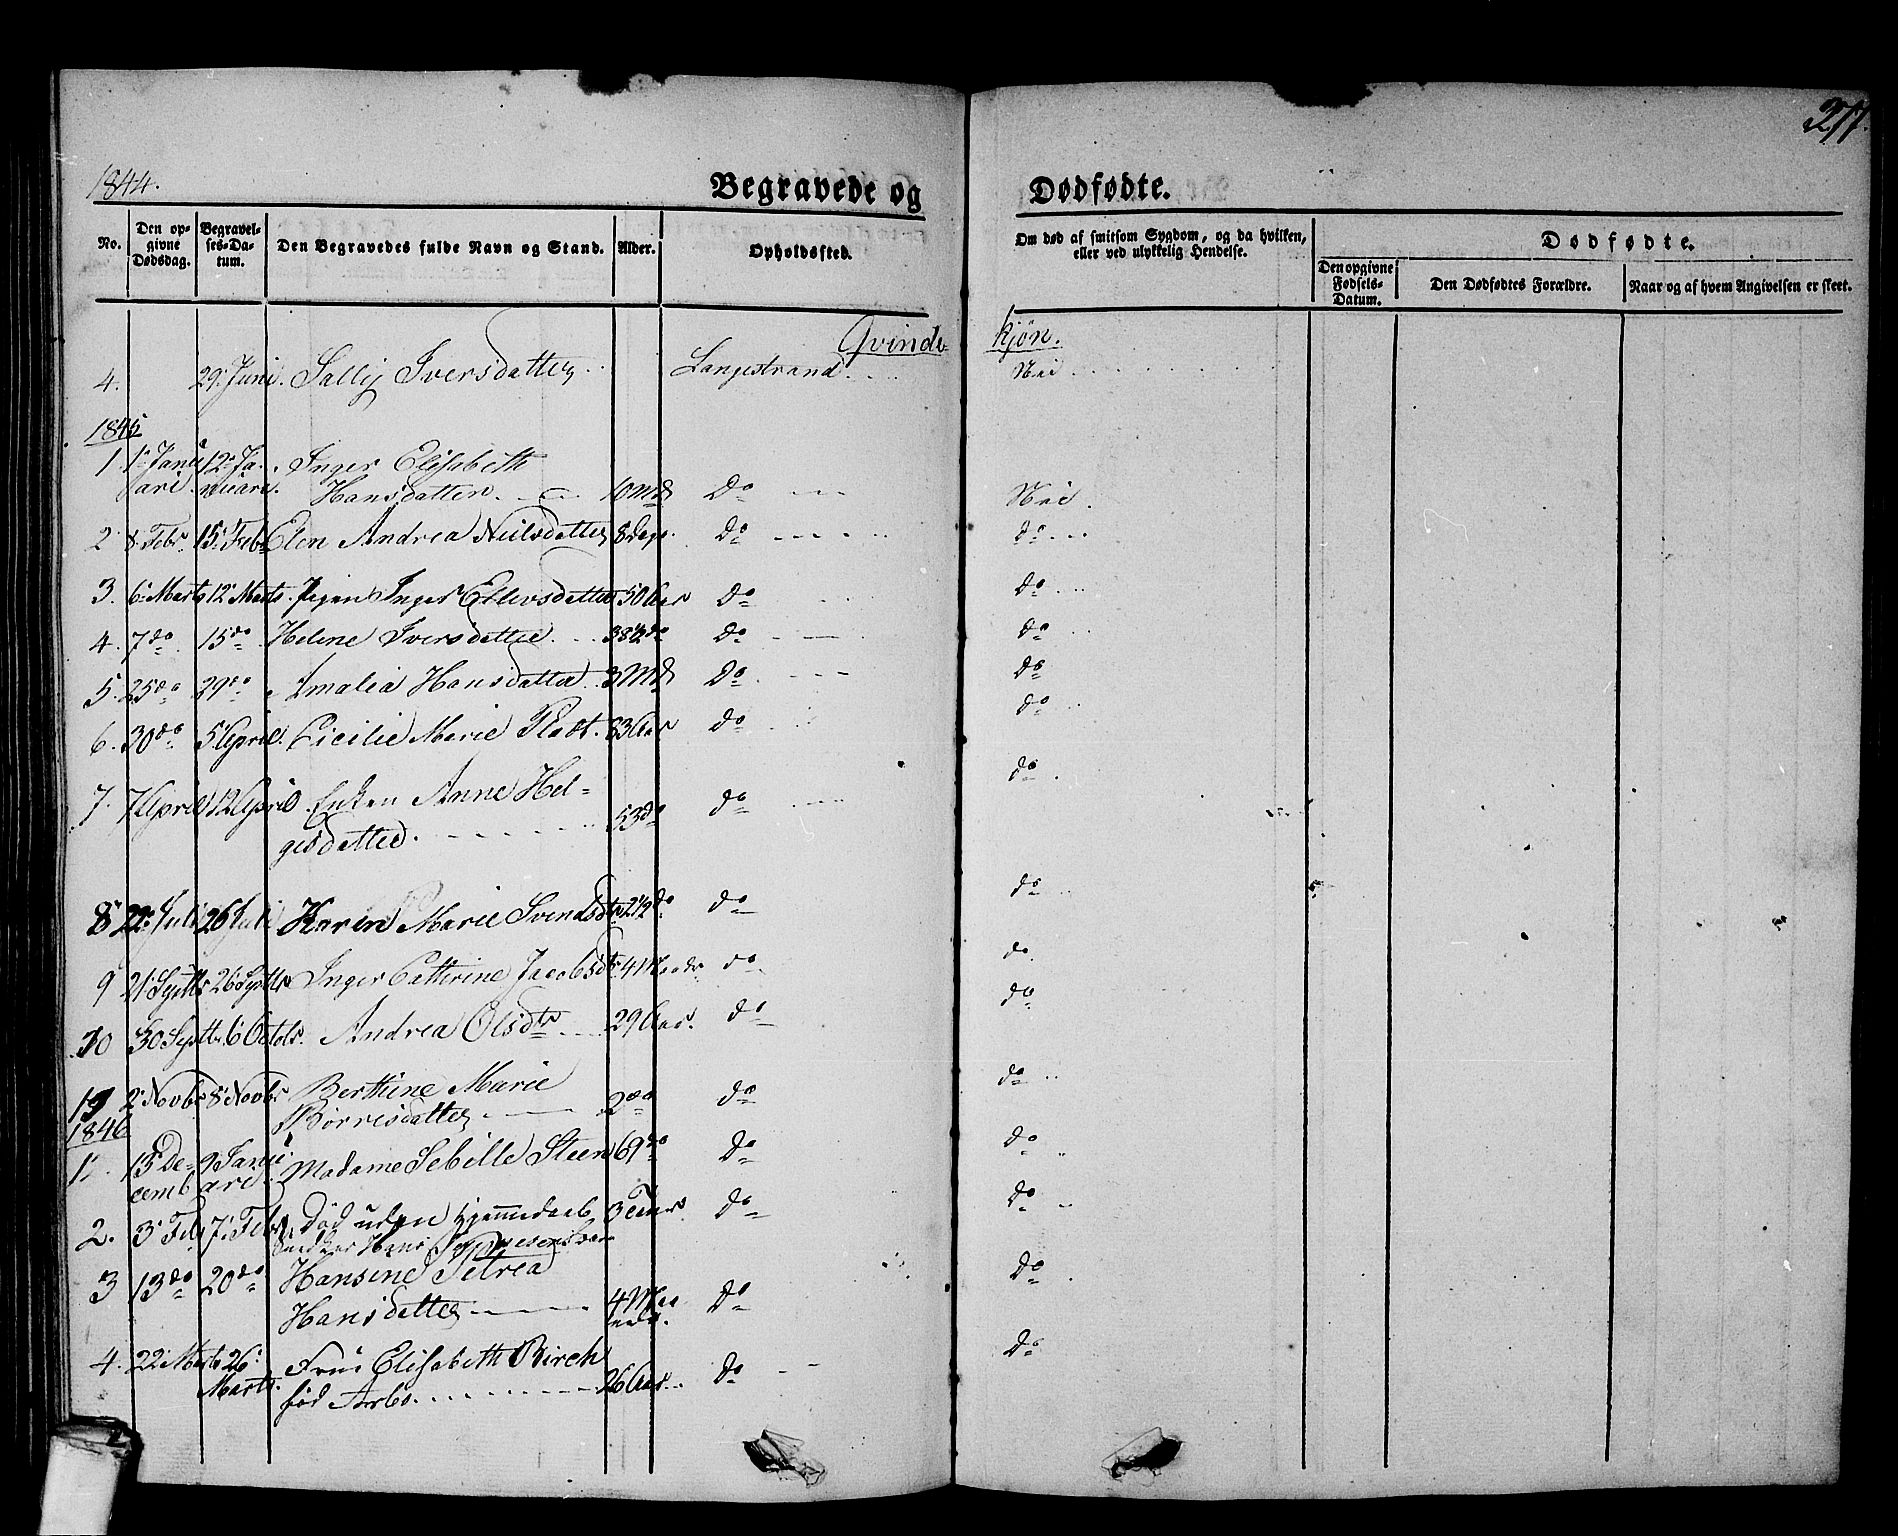 277.
1844.
Begravede og Dødfødte.
No. Den opgivne Dødsdag. Begravelses-Datum. Den Begravedes fulde Navn og Stand. Alder. Opholdssted. Om død af smitsom Sygdom, og da hvilken, eller ved ulykkelig Hendelse. Dødfødte.
Den opgivne Fødsels-Datum. Den Dødfødtes Forældre. Naar og af hvem Angivelsen er skeet.
Qvinde kjøn.
4. 29. Juni. Iversdatter Langestrand Nei
1845
1. 1. Janu 12. Ja- Inger Elisabeth
ari nuari. Hansdatter 10 Md Do Nei.
2 8. Febr. 15. Feb. Elen Andrea Neilsdatter 8 Dage. do do
3. 6. Marts 12. Marts. Pigen Inger Ellevsdatter 50 Aar do do
4. 7. do 15. do Helene Iversdatter 38½ do do do
5. 25 do 29. do Amalia Hansdatter 3 Md Do do
6. 30 do 5. April. Cicilie Marie Pladt. 83 Aar do do
7. 7 April 12 April Enken Anne Hel-
gesdatter. 53 do do do
8. 22. Juli 26 Juli Karen Marie Svendsdtr 2½ do do do
9 21. Septbr 26. Septbr Inger Cathrine Jacobsdtr 4 Maadr do do
10 30 Septbr. 6 Octob. Andrea Olsdtr 29 Aar. do do
11 2. Novbr 8. Novbr Berthine Marie
Børrisdatter 2 do do do
1846
1. 13 De- 9 Janu Madame Sebille Steen 69 do do do
cemb ari.
2. 3. Feb 7. Febr. Død uden Hjemmedaab 3 Timer do do
Hans
3 13 do 20 do Hansine Petrea
Hansdatter 4 Maa
neder. do do
4. 22 Marts 26. Fruе Elisabeth Birch
Marts. fød Arbo. 26 Aar do do